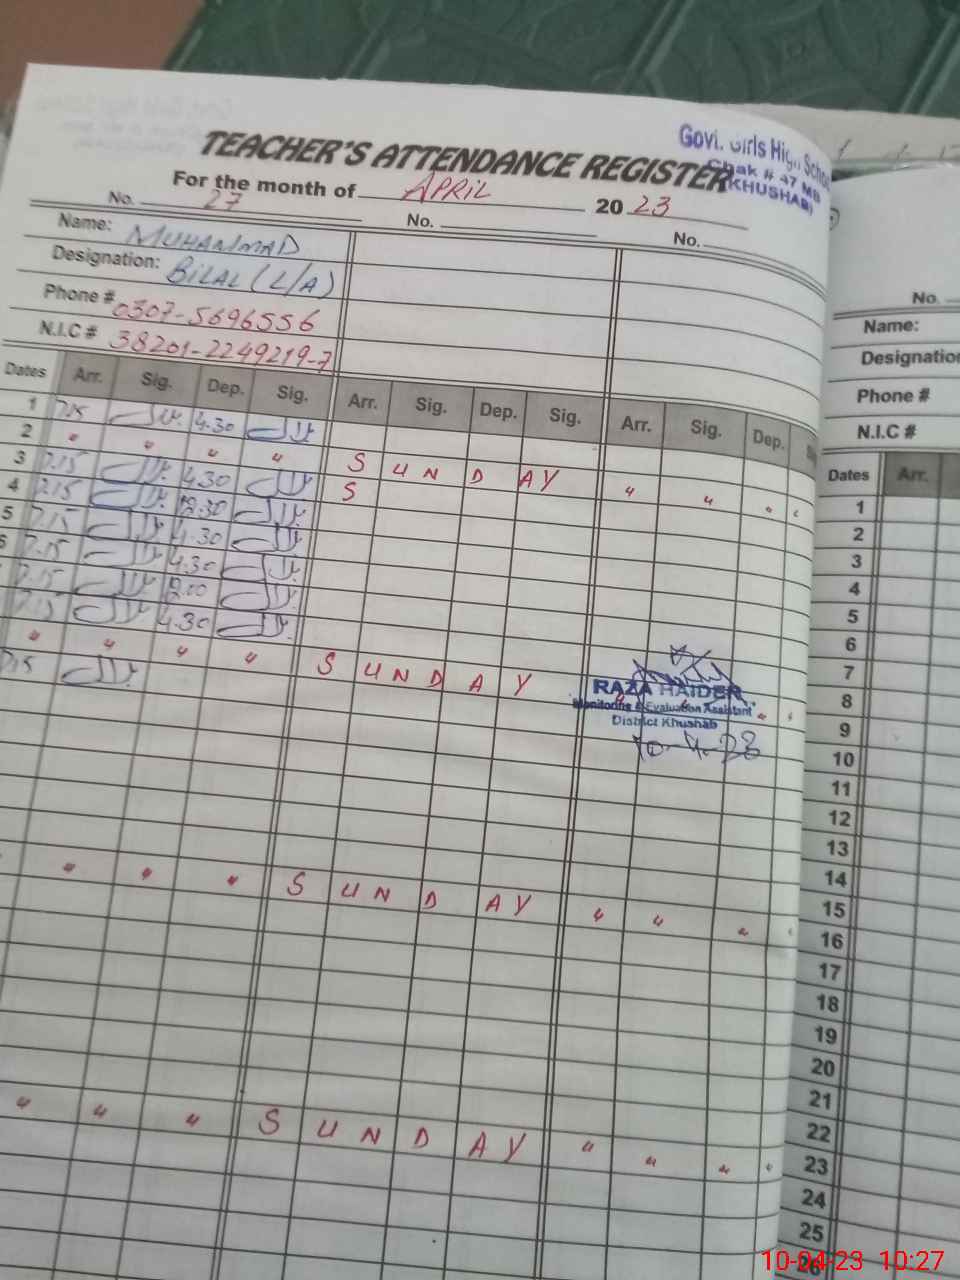 TEACHER'S ATTENDANCE REGISTER
Govt. Girls High School
Chak # 47 MB
(KHUSHAB)
For the month of APRIL 20 23
No. 27 No. No.
Name: MUHAMMAD
Designation: BILAL (L/A)
Phone # 0307-5696556
N.I.C # 38201-2249219-7
Dates Arr. Sig. Dep. Sig. Arr. Sig. Dep. Sig. Arr. Sig. Dep.
1 7.15 4.30
2 " " " " SUNDAY " " " "
3 7.15 4.30 S
4 7.15 12.30
5 7.15 4.30
6 7.15 4.30
7.15 12.00
7.15 4.30
" " " " SUNDAY " " "
7.15
RAZA HAIDER
Monitoring & Evaluation Assistant
District Khushab
10-4-23
" " " SUNDAY " " " "
" " " SUNDAY " " " "
No.
Name:
Designation
Phone #
N.I.C #
Dates Arr.
1
2
3
4
5
6
7
8
9
10
11
12
13
14
15
16
17
18
19
20
21
22
23
24
25
26
10-04-23 10:27